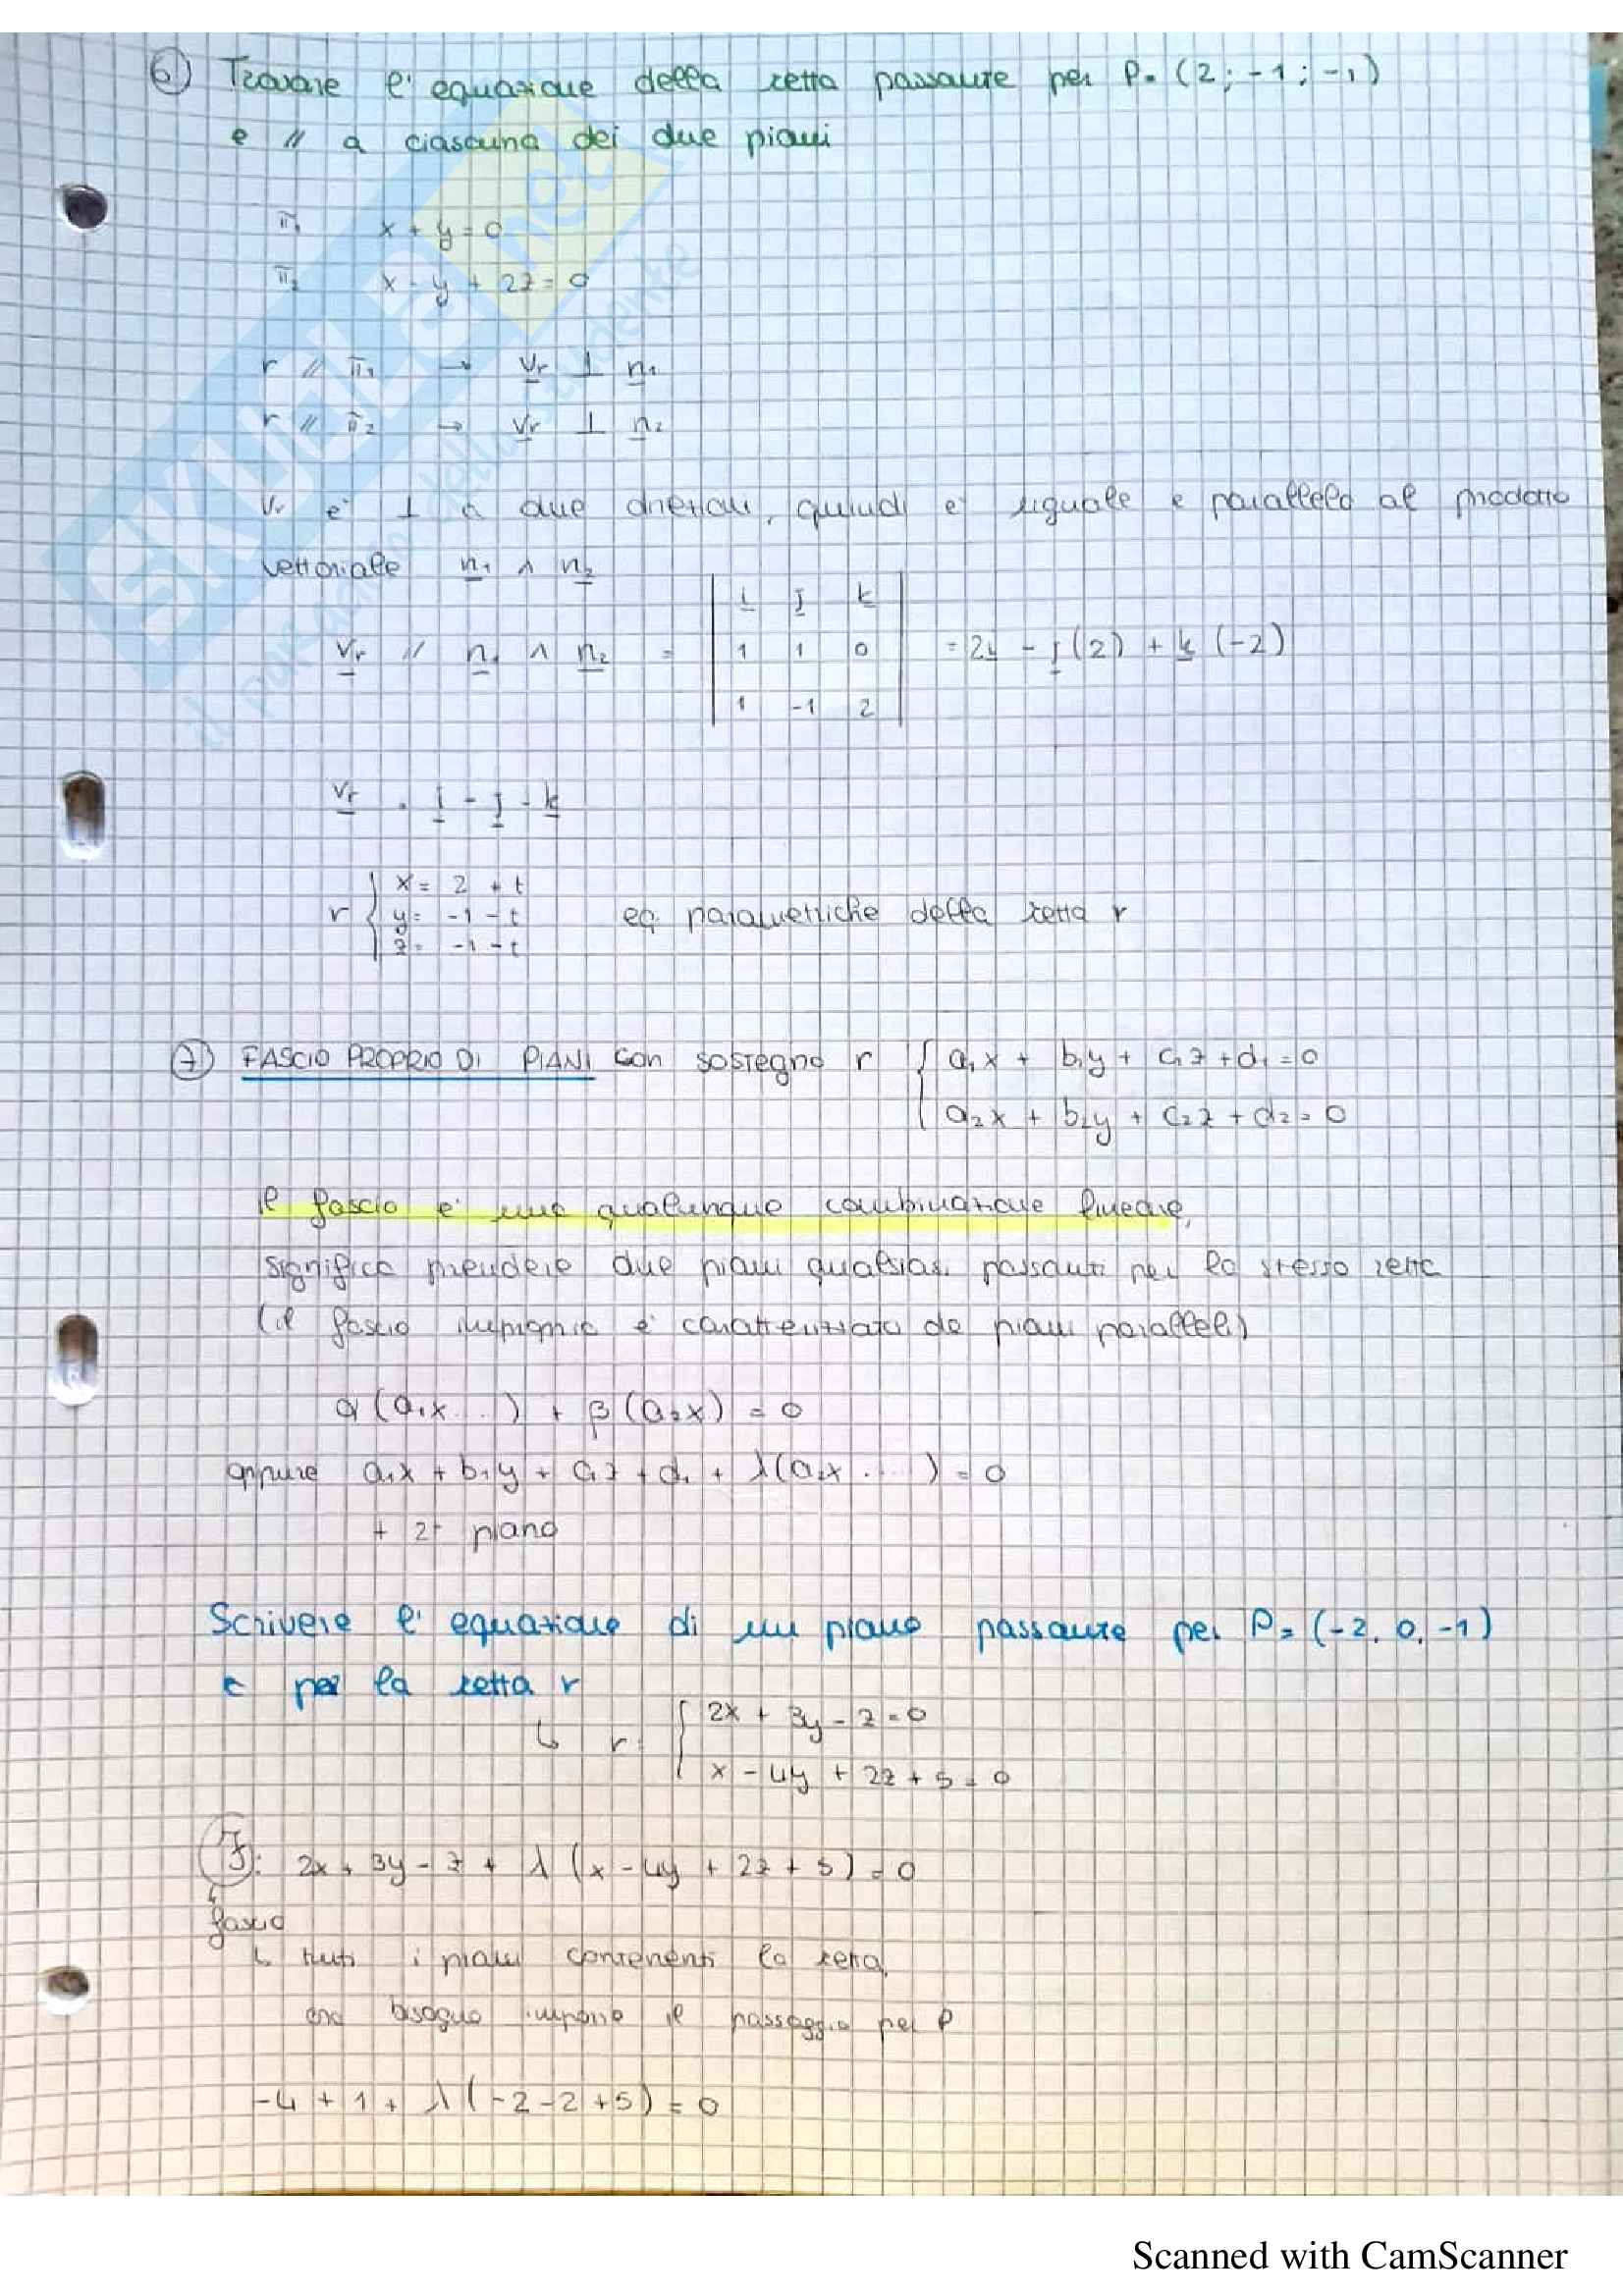 6) Trovare l'equazione della retta passante per P = (2; -1; -1)
e // a ciascuna dei due piani
π1 x + y = 0
π2 x - y + 2z = 0
r // π1 → vr ⊥ n1
r // π2 → vr ⊥ n2
vr e' ⊥ a due direzioni, quindi e' uguale e parallelo al prodotto
vettoriale n1 ∧ n2
vr // n1 ∧ n2 = | i j k | = 2i - j(2) + k(-2)
| 1 1 0 |
| 1 -1 2 |
vr = i - j - k
r { x = 2 + t
y = -1 - t eq. parametriche della retta r
z = -1 - t
7) FASCIO PROPRIO DI PIANI con sostegno r { a1x + b1y + c1z + d1 = 0
a2x + b2y + c2z + d2 = 0
il fascio e' una qualunque combinazione lineare,
significa prendere due piani qualsiasi passanti per la stessa retta
(il fascio improprio e' caratterizzato da piani paralleli)
α(a1x...) + β(a2x) = 0
oppure a1x + b1y + c1z + d1 + λ(a2x....) = 0
+ 2° piano
Scrivere l'equazione di un piano passante per P = (-2, 0, -1)
e per la retta r
↳ r { 2x + 3y - z = 0
x - 4y + 2z + 5 = 0
F: 2x + 3y - z + λ(x - 4y + 2z + 5) = 0
↳
fascio
↳ tutti i piani contenenti la retta,
ora bisogna imporre il passaggio per P
-4 + 1 + λ(-2 - 2 + 5) = 0
SKUOLA.net
il paradiso dello studente
Scanned with CamScanner